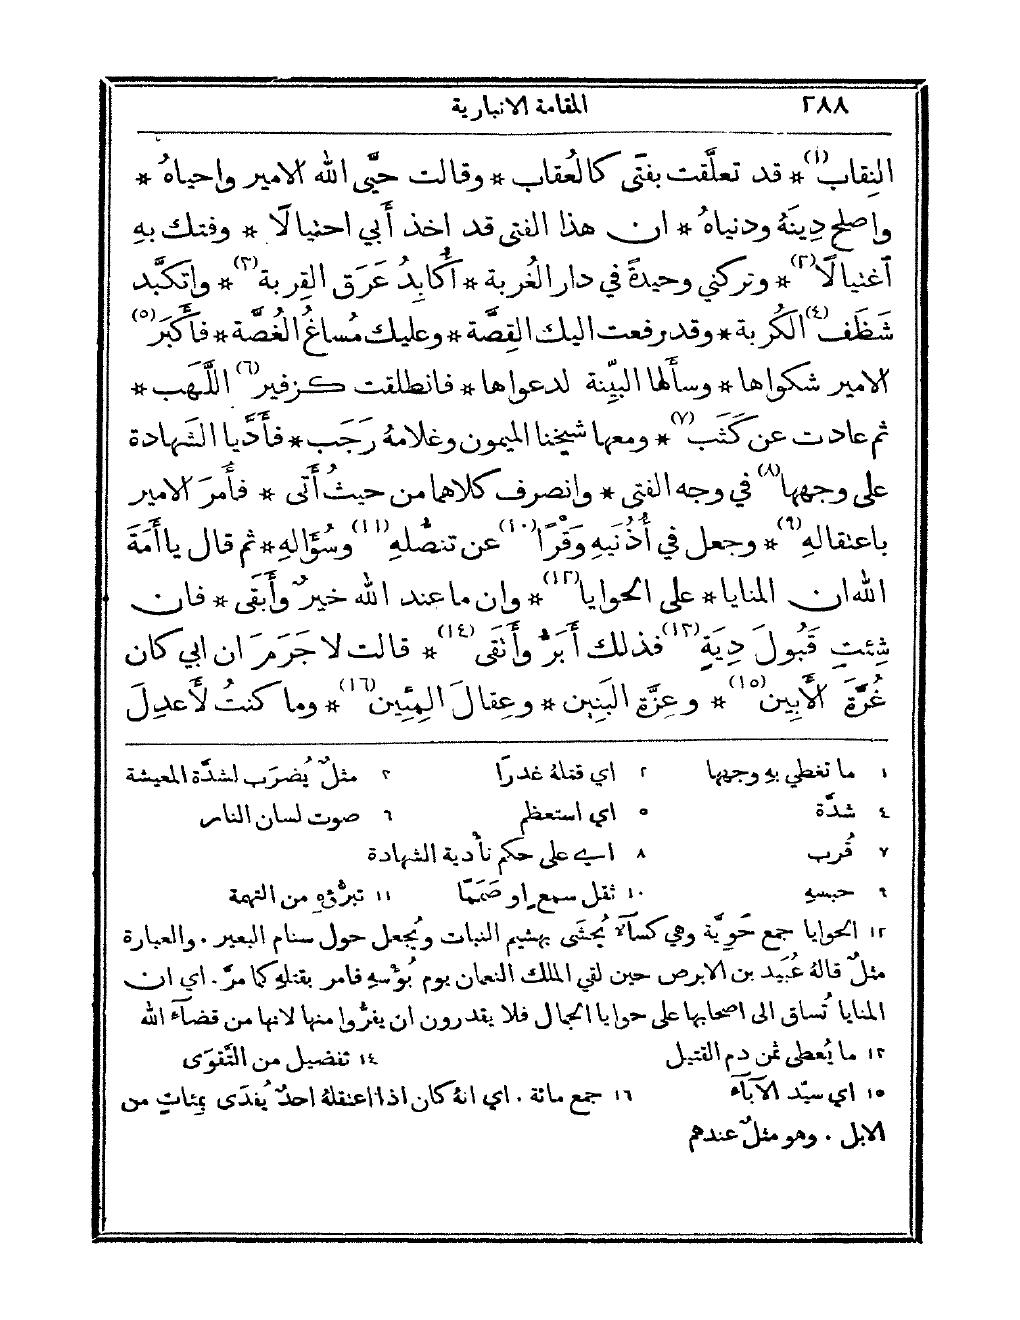 ٢٨٨ المقامة الانبارية
النِقاب(١) * قد تعلَّقت بفتًى كالعُقاب * وقالت حيَّى الله الامير واحياهُ *
واصلح دِينَهُ ودنياهُ * ان هذا الفتى قد اخذ أَبي احتيالًا * وفتك بهِ
اغتيالًا(٢) * وتركني وحيدةً في دار الغُربة * أُكابِدُ عَرَق القِربة(٣) * واتكبَّد
شَظَف(٤) الكُربة * وقد رفعت اليك القِصَّة * وعليك مُساغُ الغُصَّة * فأَكبَرَ(٥)
الامير شكواها * وسأَلها البيّنة لدعواها * فانطلقت كزفير(٦) اللَّهَب *
ثم عادت عن كَثَب(٧) * ومعها شيخنا الميمون وغلامهُ رَجَب * فأَدَّيا الشهادة
على وجهها(٨) في وجه الفتى * وانصرف كلاهما من حيثُ أَتى * فأَمرَ الامير
باعتقالهِ(٩) * وجعل في أُذُنَيهِ وَقْرًا(١٠) عن تنصُّلهِ(١١) وسُؤَالهِ * ثم قال يا أَمَةَ
الله ان المنايا * على الحوايا(١٢) * وان ما عند الله خيرٌ وأَبقَى * فان
شِئتِ قَبُولَ دِيَةٍ(١٣) فذلك أَبَرُّ وأَنقَى(١٤) * قالت لا جَرَمَ ان ابي كان
غُرَّةَ الأَبين(١٥) * وعِزَّةِ البَنِين * وعِقالَ المِئِين(١٦) * وما كنتُ لأَعدِلَ
١ ما تغطي بهِ وجهها ٢ اي قتلهُ غدرًا ٣ مثلٌ يُضرَب لشدَّة المعيشة
٤ شدَّة ٥ اي استعظم ٦ صوت لسان النار
٧ قُرب ٨ اي على حكم تأدية الشهادة
٩ حبسهِ ١٠ ثقل سمعٍ او صَمَمًا ١١ تبرُّؤهِ من التهمة
١٢ الحوايا جمع حَوِيَّة وهي كسآءٌ يُحشَى بهشيم النبات ويُجعل حول سنام البعير . والعبارة
مثلٌ قالهُ عُبَيد بن الابرص حين لقي الملك النعمان يوم بُؤْسهِ فامر بقتلهِ كما مرَّ . اي ان
المنايا تُساق الى اصحابها على حوايا الجمال فلا يقدرون ان يفرُّوا منها لانها من قضآء الله
١٣ ما يُعطى ثمن دم القتيل ١٤ تفضيل من التَّقوَى
١٥ اي سيّد الآبآء ١٦ جمع مائة . اي انهُ كان اذا اعتقلهُ احدٌ يُفدَى بِمئاتٍ من
الابل . وهو مثلٌ عندهم